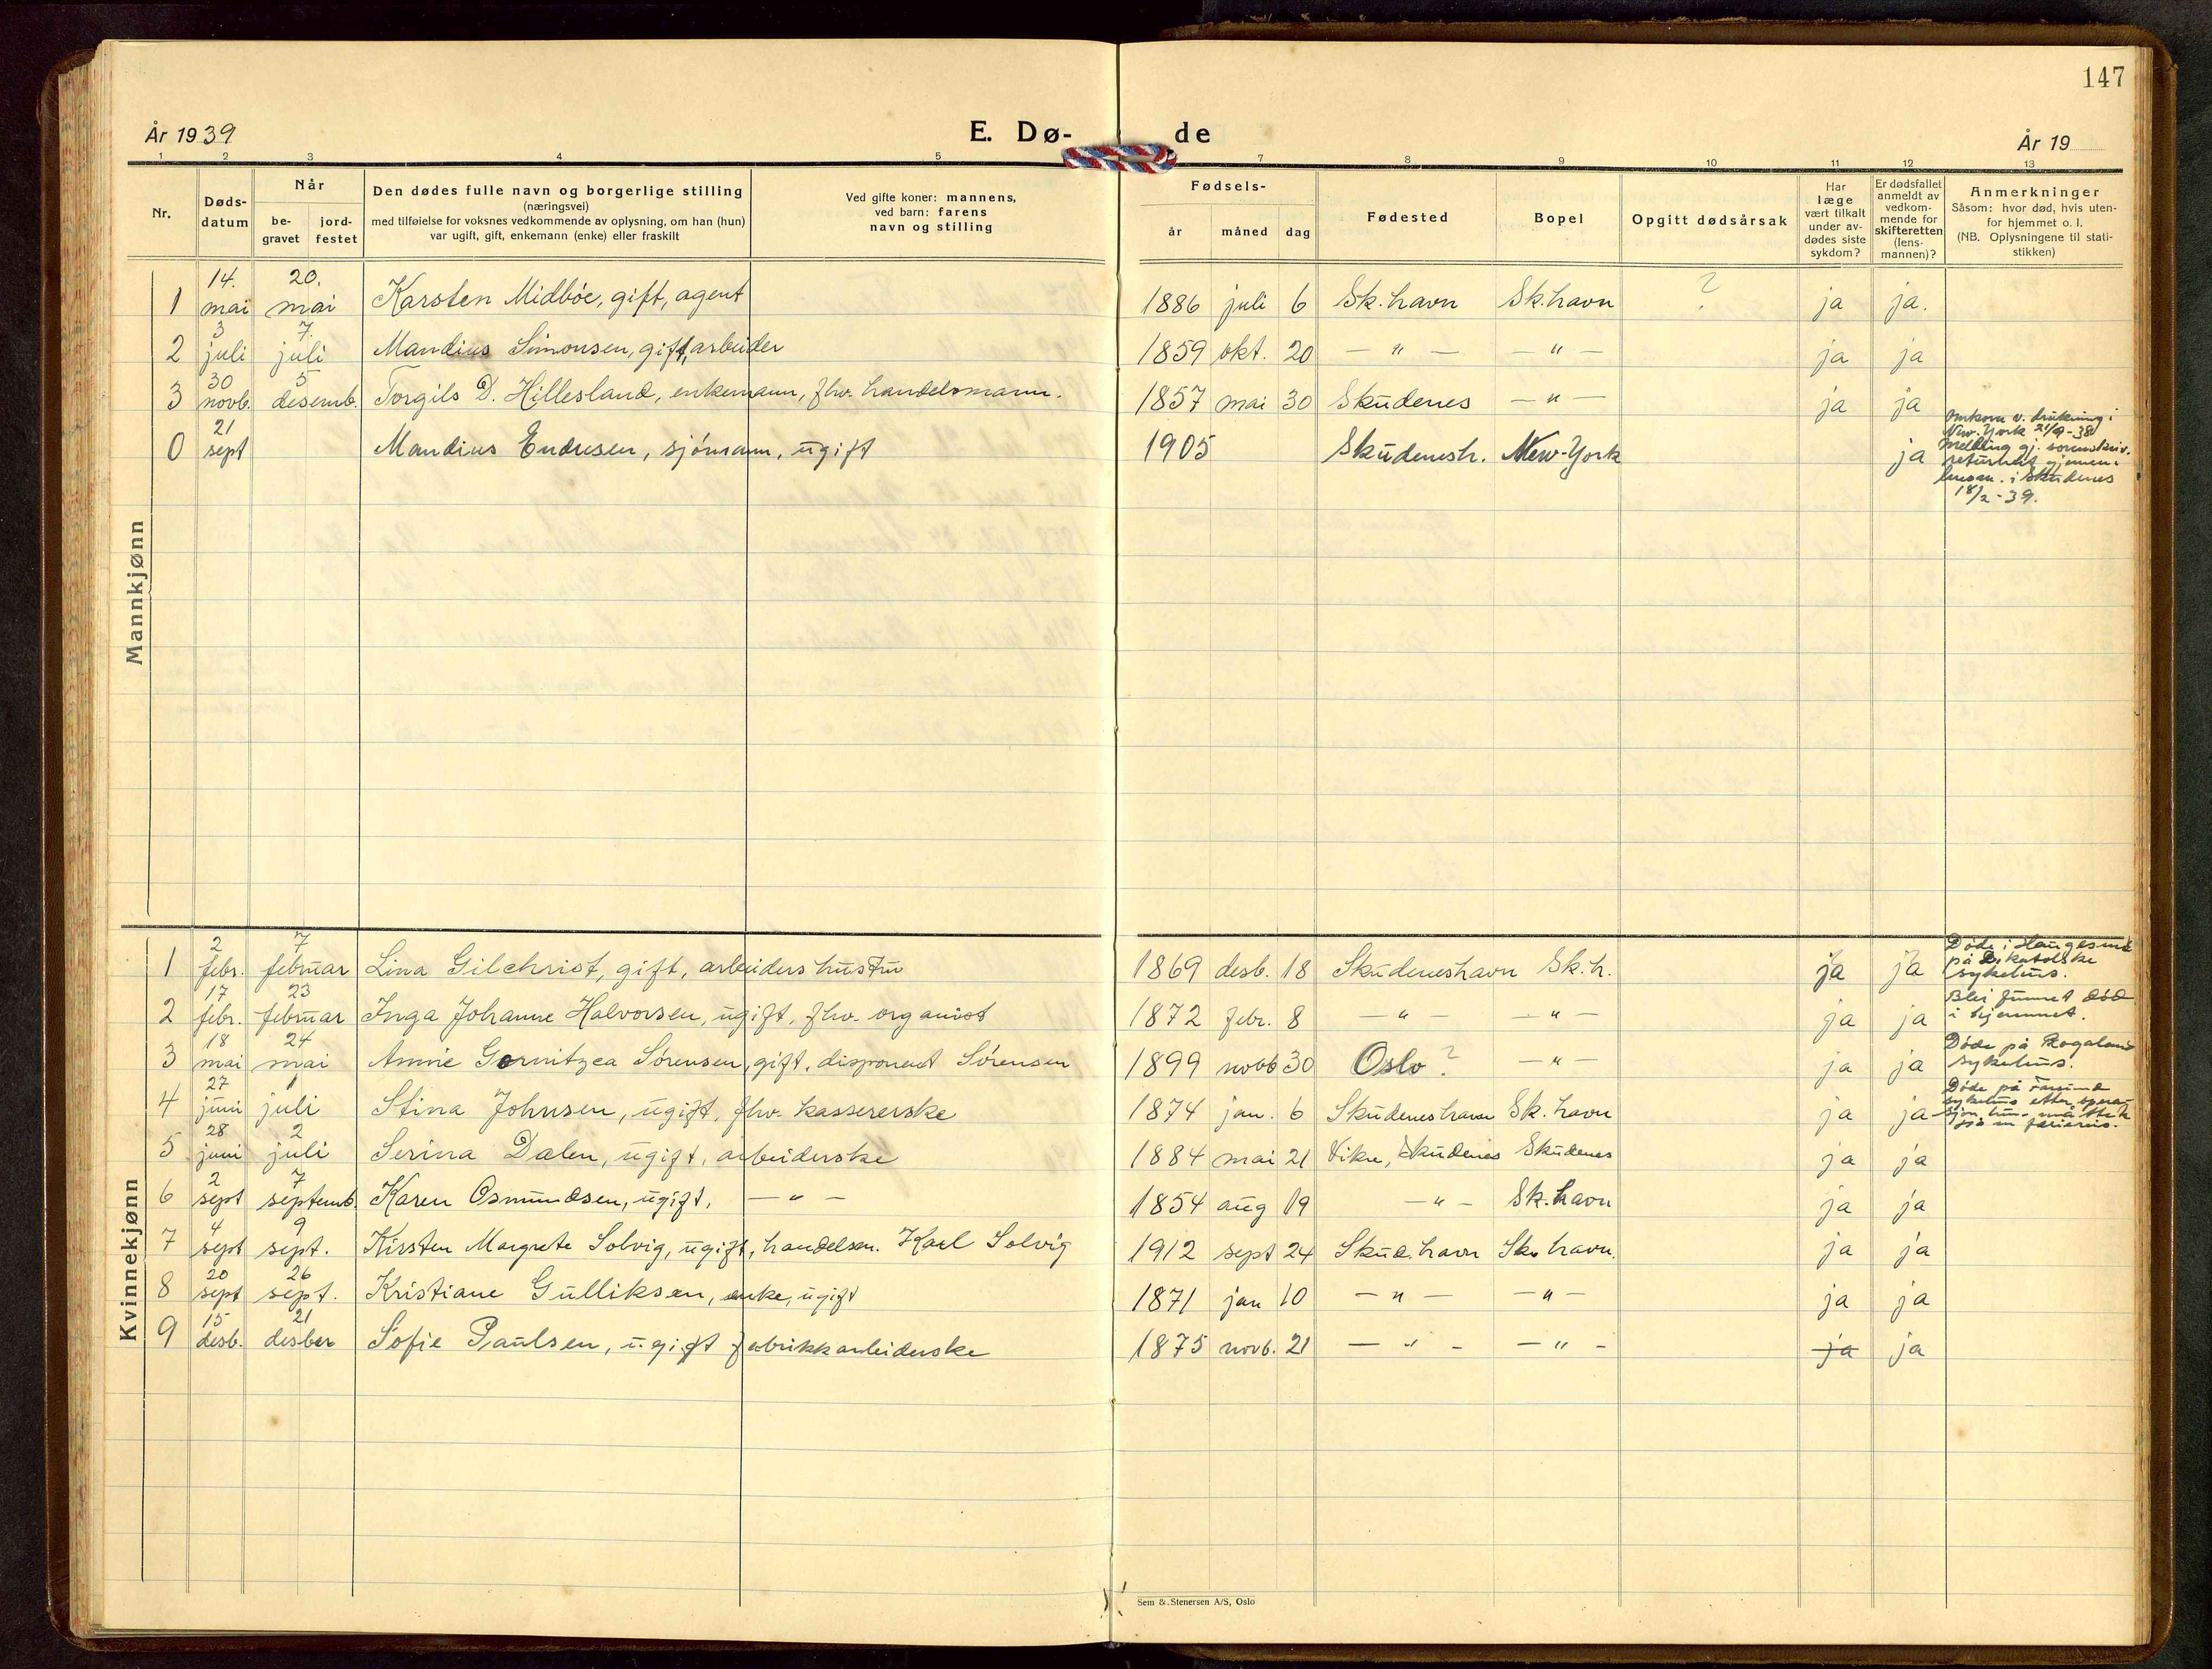 147
År 1939
E. Dø- de
År 19
1 2 3 4 5 7 8 9 10 11 12 13
Nr.
Døds-
datum
Når
be-
gravet
jord-
festet
Den dødes fulle navn og borgerlige stilling
(næringsvei)
med tilføielse for voksnes vedkommende av oplysning, om han (hun)
var ugift, gift, enkemann (enke) eller fraskilt
Ved gifte koner: mannens,
ved barn: farens
navn og stilling
Fødsels-
år måned dag
Fødested
Bopel
Opgitt dødsårsak
Har
læge
vært tilkalt
under av-
dødes siste
sykdom?
Er dødsfallet
anmeldt av
vedkom-
mende for
skifteretten
(lens-
mannen)?
Anmerkninger
Såsom: hvor død, hvis uten-
for hjemmet o. l.
(NB. Oplysningene til stati-
stikken)
Mannkjønn
14. 20.
1 mai mai Karsten Midbøe, gift, agent 1886 juli 6 Sk.havn Sk.havn ? ja ja.
3 7.
2 juli juli Mandius Simonsen, gift, arbeider 1859 okt. 20 — " — — " — ja ja
30 5
3 novb. desemb. Torgils D. Hillesland, enkemann, fhv. handelsmann. 1857 mai 30 Skudenes — " — ja ja
21
0 sept Mandius Endresen, sjømann, ugift 1905 Skudenesh. New-York ja
omkom v. drukning i
New-York 21/9-38
Melding gj. sorenskriv.
returnert gjennem
lensm. i Skudenes
18/2-39.
Kvinnekjønn
2 7
1 febr. februar Lina Gilchrist, gift, arbeiders hustru 1869 desb. 18 Skudeneshavn Sk.h. ja ja
Døde i Haugesund
på D. katolske
sykehus.
17 23
2 febr. februar Inga Johanne Halvorsen, ugift, fhv. organist 1872 febr. 8 — " — — " — ja ja
Blei funnet død
i hjemmet.
18 24
3 mai mai Annie Gornitzca Sørensen, gift, disponent Sørensen 1899 novb 30 Oslo ? — " — ja ja
Døde på Rogaland
sykehus.
27 1
4 juni juli Stina Johnsen, ugift, fhv. kassererske 1874 jan. 6 Skudeneshavn Sk. havn ja ja
Døde på
sykehus etter opera-
sjon,
28 2
5 juni juli Serina Dalen, ugift, arbeiderske 1884 mai 21 Vikre, Skudenes Skudenes ja ja
2 7
6 sept septemb. Karen Osmundsen, ugift, — " — 1854 aug 19 — " — Sk. havn ja ja
4 9
7 sept sept. Kirsten Margrete Solvig, ugift, handelsm. Karl Solvig 1912 sept 24 Skud.havn Sk. havn. ja ja
20 26
8 sept sept. Kristiane Gulliksen, enke, ugift 1871 jan 10 — " — — " — ja ja
15 21
9 desb. desber Sofie Paulsen, ugift fabrikkarbeiderske 1875 novb. 21 — " — — " — ja ja
Sem & Stenersen A/S, Oslo